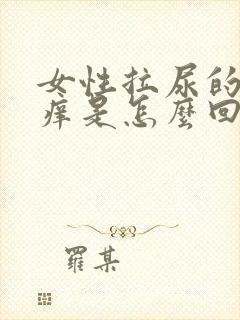 女性拉尿的
痒是怎麼回
羅某